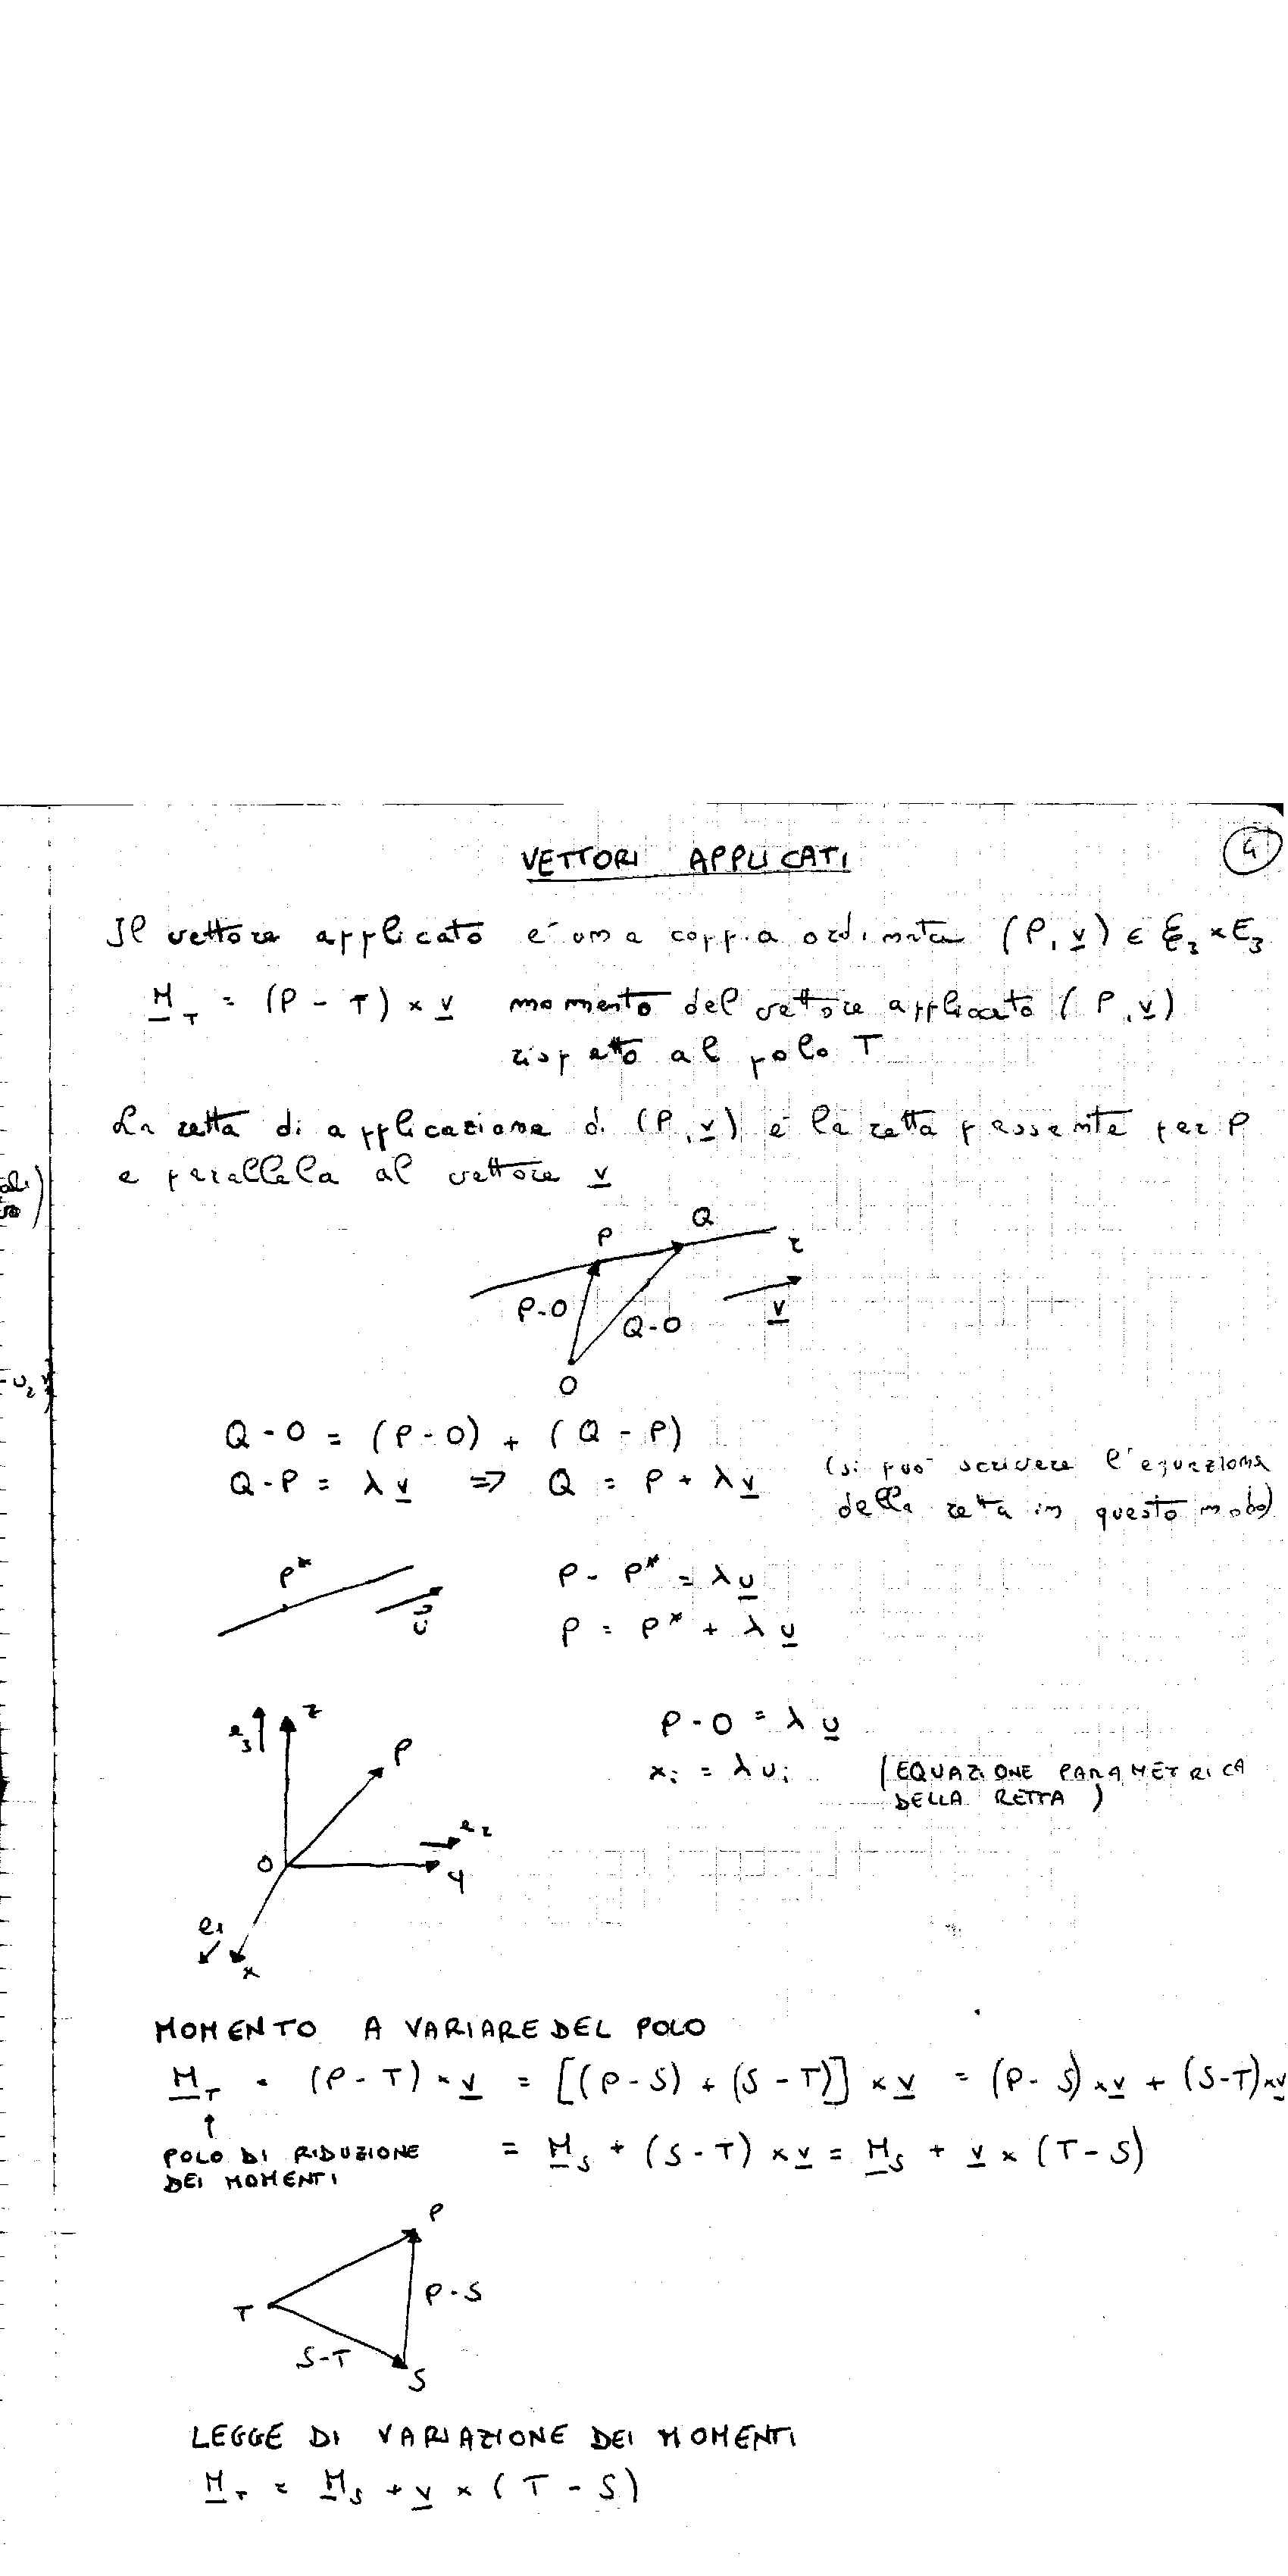 VETTORI APPLICATI
4
Il vettore applicato è una coppia ordinata (P, v) ∈ ℰ₃ × E₃
M_T = (P - T) × v momento del vettore applicato (P, v)
rispetto al polo T
La retta di applicazione di (P, v) è la retta passante per P
e parallela al vettore v
P
Q
r
P-O
Q-O
v
O
Q - O = (P - O) + (Q - P)
Q - P = λ v ⇒ Q = P + λ v
(si può scrivere l'equazione
della retta in questo modo)
P*
u
P - P* = λ u
P = P* + λ u
e₃
z
P
O
e₂
y
e₁
x
P - O = λ u
xᵢ = λ uᵢ
(EQUAZIONE PARAMETRICA
DELLA RETTA)
MOMENTO A VARIARE DEL POLO
M_T = (P - T) × v = [(P - S) + (S - T)] × v = (P - S) × v + (S - T) × v
↑
POLO DI RIDUZIONE
DEI MOMENTI
= M_S + (S - T) × v = M_S + v × (T - S)
P
T
P - S
S - T
S
LEGGE DI VARIAZIONE DEI MOMENTI
M_T = M_S + v × (T - S)